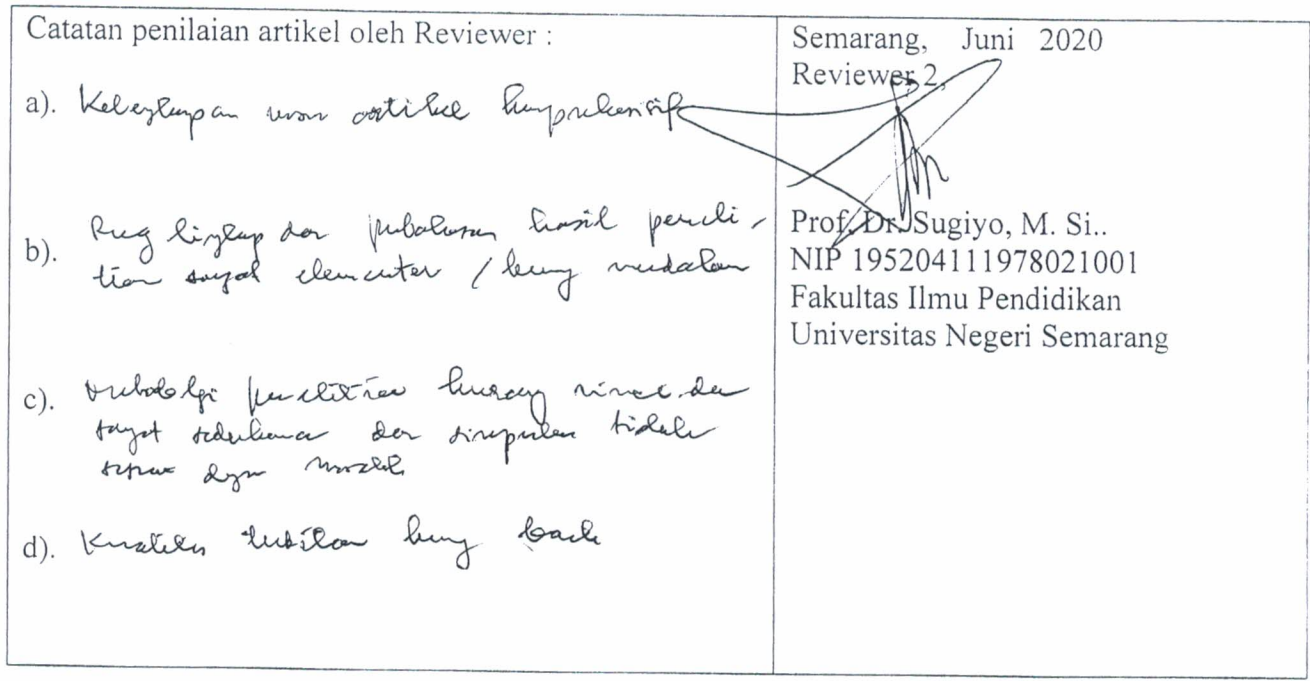 Catatan penilaian artikel oleh Reviewer :
a). Kelengkapan unsur artikel komprehensif
b). Ruang lingkup dan pembahasan hasil peneli-
tian sangat elementer / kurang mendalam
c). Metodologi penelitian kurang rinci dan
sangat sederhana dan simpulan tidak
sesuai dengan
d). Kualitas terbitan kurang baik
Semarang, Juni 2020
Reviewer 2,
Prof. Dr. Sugiyo, M. Si..
NIP 195204111978021001
Fakultas Ilmu Pendidikan
Universitas Negeri Semarang